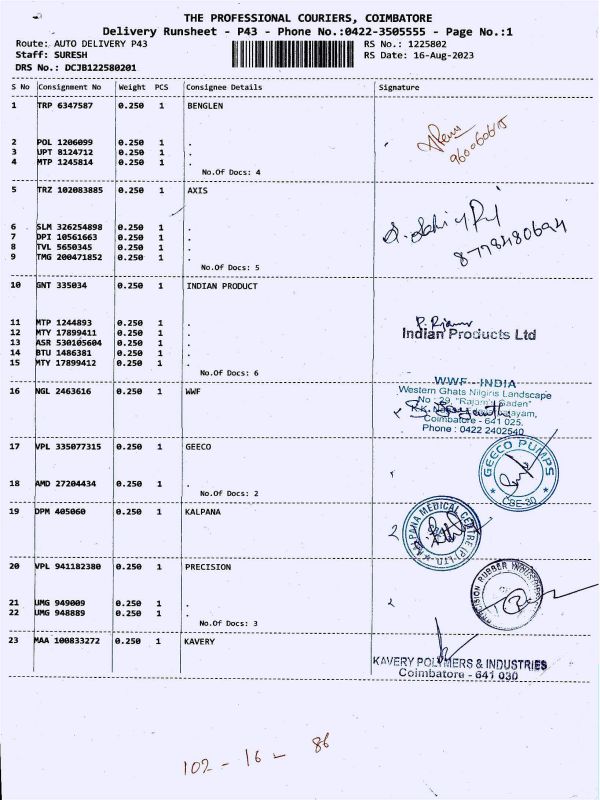 THE PROFESSIONAL COURIERS, COIMBATORE
Delivery Runsheet - P43 - Phone No.:0422-3505555 - Page No.:1
Route: AUTO DELIVERY P43 RS No.: 1225802
Staff: SURESH RS Date: 16-Aug-2023
DRS No.: DCJB122580201
S No Consignment No Weight PCS Consignee Details Signature
1 TRP 6347587 0.250 1 BENGLEN
2 POL 1206099 0.250 1 .
3 UPT 8124712 0.250 1 .
4 MTP 1245814 0.250 1 .
No.Of Docs: 4
5 TRZ 102083885 0.250 1 AXIS
6 SLM 326254898 0.250 1 .
7 DPI 10561663 0.250 1 .
8 TVL 5650345 0.250 1 .
9 TMG 200471852 0.250 1 .
8778480694
No.Of Docs: 5
10 GNT 335034 0.250 1 INDIAN PRODUCT
11 MTP 1244893 0.250 1 .
12 MTY 17899411 0.250 1 .
Indian Products Ltd
13 ASR 530105604 0.250 1 .
14 BTU 1486381 0.250 1 .
15 MTY 17899412 0.250 1 .
No.Of Docs: 6
WWF - INDIA
16 NGL 2463616 0.250 1 WWF
Western Ghats Nilgiris Landscape
No : 29, "Rajam Gaden"
Coimbatore - 641 025.
Phone : 0422 2402540
17 VPL 335077315 0.250 1 GEECO
GEECO PUMPS
CBE-30
18 AMD 27204434 0.250 1 .
No.Of Docs: 2
19 DPM 405060 0.250 1 KALPANA
KALPANA MEDICAL CENTRE (P) LTD.
20 VPL 941182380 0.250 1 PRECISION
PRECISION RUBBER
21 UMG 949009 0.250 1 .
22 UMG 948889 0.250 1 .
No.Of Docs: 3
23 MAA 100833272 0.250 1 KAVERY
KAVERY POLYMERS & INDUSTRIES
Coimbatore - 641 030
102 - 16 - 86